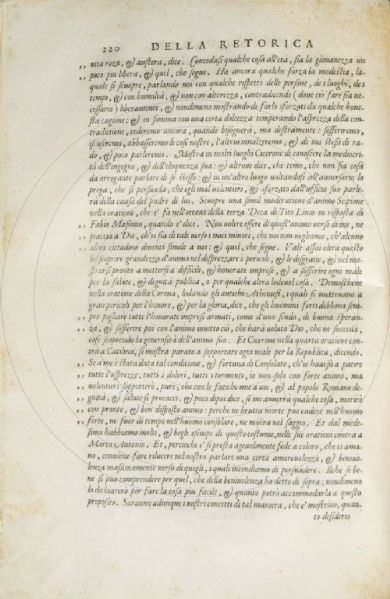 220 DELLA RETORICA
uita roza, & austera, dice. Concedasi qualche cosa all'età, sia la giouanezza un
poco piu libera, & quel, che segue. Ha ancora qualche forza la modestia, la-
quale si scuopre, parlando noi con qualche rispetto delle persone, de i luoghi, de i
tempi, & con humiltà, & non con alterezza, contradicendo (doue ciò fare sia ne-
cessario) liberamente, & nondimeno mostrando di farlo sforzati da qualche hone-
sta cagione: & in somma con una certa dolcezza temperando l'asprezza della con-
tradittione, cederemo ancora, quando bisognerà, ma destramente: sofferiremo,
scuseremo, abbasseremo le cose nostre, l'altrui innalzeremo, & di noi stessi di ra-
do, & poco parleremo. Mostra in molti luoghi Cicerone di conoscere la mediocri-
tà dell'ingegno, & dell'eloquenza sua: & altroue dice, che teme, che non sia cosa
da arrogante parlare di se stesso: & in un'altro luogo uoltandosi all'auuersario lo
prega, che si persuada, che egli mal uolentieri, & sforzato dall'ufficio suo parle-
rà della causa del padre di lui. Scuopre una simil moderatione d'animo Scipione
nella oratione, che è fra nell'ottauo della terza Deca di Tito Liuio in risposta di
Fabio Massimo, quando e' dice. Non uolere esser di quest'animo uerso di me, ne
piaccia a Dio, ch'io sia di tale uerso i miei minori, che noi non uogliamo, ch'alcuno
altro cittadino diuenti simile a noi: & quel, che segue. Vale assai oltra questo
lo scoprire grandezza d'animo nel disprezzare i pericoli, & le disgratie, & nel mo-
strarsi pronto a mettersi a difficili, & honorate imprese, & a sofferire ogni male
per la salute, & dignità publica, o per qualche altra lodeuol cosa. Demosthene
nella oratione della Corona, lodando gli antichi Atheniesi, i quali si metteuano a
gran pericoli per l'honore, & per la gloria, dice, che gli huomini forti debbono sem-
pre pigliare tutte l'honorate imprese armati, come d'uno scudo, di buona speran-
za, & sofferire poi con l'animo inuitto ciò, che harà uoluto Dio, che ne succeda,
così scoprendo la generosità dell'animo suo. Et Cicerone nella quarta oratione con-
tra a Catilina, si mostra parato a sopportare ogni male per la Republica, dicendo.
Se a me è stata data a tal conditione, & fortuna il Consolato, ch'io hauessi a patire
tutte l'asprezze, tutti i dolori, tutti i tormenti, io non solo con forte animo, ma
uolentieri sopporterò, pure, che con le fatiche mie a uoi, & al popolo Romano di-
gnità, & salute si procacci. & poco dipoi dice, se mi auuerrà qualche cosa, morirò
con pronto, & ben disposto animo: perche ne brutta morte può cadere nell'huomo
forte, ne fuor di tempo nell'huomo consolare, ne misera nel saggio. Et dal mede-
simo habbiamo molti, & begli essempi di questo costume, nelle sue orationi contra a
Marco Antonio. Et, percioche e' si presta ageuolmente fede a coloro, che ci ama-
no, conuiene fare rilucere nel nostro parlare una certa amoreuolezza, & beniuo-
lenza massimamente uerso di quegli, i quali intendiamo di persuadere. Ilche si be-
ne si può comprendere per quel, che della beniuolenza ho detto di sopra; nondimeno
lo dichiarerò per fare la cosa piu facile, & quanto potrò accommodarla a questo
proposito. Saranno adunque i nostri concetti di tal maniera, che e' mostrino, quan-
to desiderio